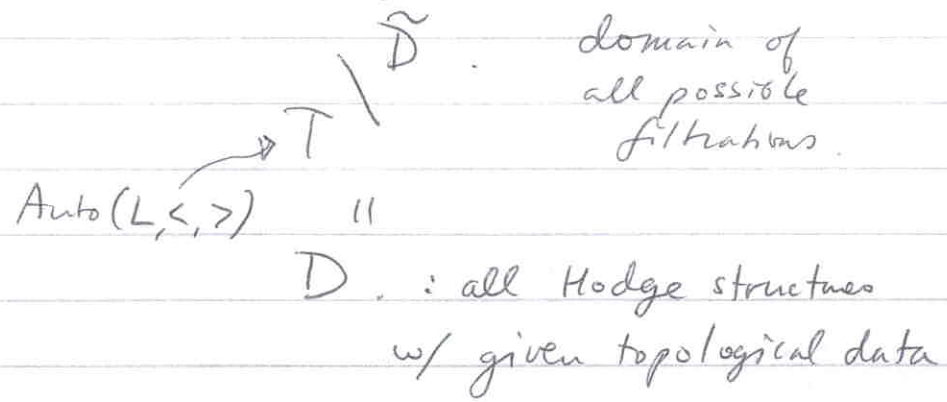 D̃ . domain of
all possible
filtrations.
Γ \
Auto(L, <, >)
||
D. : all Hodge structures
w/ given topological data